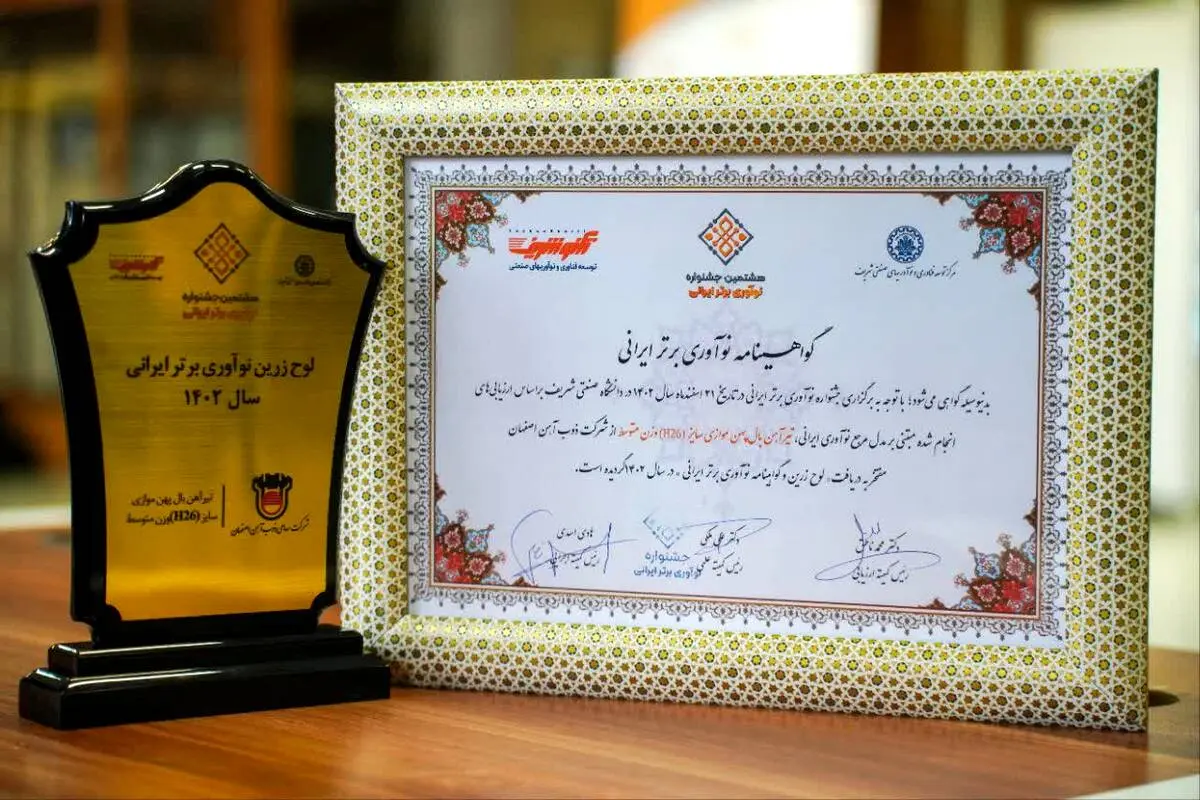 هشتمین جشنواره
نوآوری برتر ایرانی
لوح زرین نوآوری برتر ایرانی
سال ۱۴۰۲
تیرآهن بال پهن موازی
سایز (H26) وزن متوسط
شرکت سهامی ذوب آهن اصفهان
تکنوشریف
توسعه فناوری و نوآوریهای صنعتی
هشتمین جشنواره
نوآوری برتر ایرانی
مرکز توسعه فناوری و نوآوریهای صنعتی شریف
گواهینامه نوآوری برتر ایرانی
بدینوسیله گواهی می‌شود؛ با توجه به برگزاری جشنواره نوآوری برتر ایرانی در تاریخ ۲۱ اسفندماه سال ۱۴۰۲ در دانشگاه صنعتی شریف براساس ارزیابی‌های
انجام شده مبتنی بر مدل مرجع نوآوری ایرانی، تیرآهن بال پهن موازی سایز (H26) وزن متوسط از شرکت ذوب آهن اصفهان
مفتخر به دریافت «لوح زرین و گواهینامه نوآوری برتر ایرانی» در سال ۱۴۰۲ گردیده است.
دکتر محمد
رئیس کمیته ارزیابی
دکتر علی ملکی
رئیس کمیته علمی
جشنواره
نوآوری برتر ایرانی
هادی اسدی
رئیس کمیته